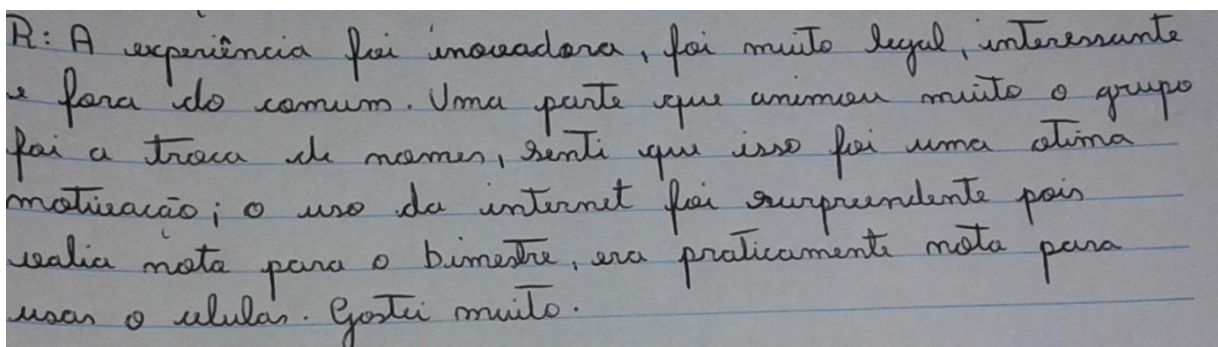 R: A experiência foi inovadora, foi muito legal, interessante
e fora do comum. Uma parte que animou muito o grupo
foi a troca de nomes, senti que isso foi uma otima
motivação; o uso da internet foi surpreendente pois
valia nota para o bimestre, era praticamente nota para
usar o celular. Gostei muito.